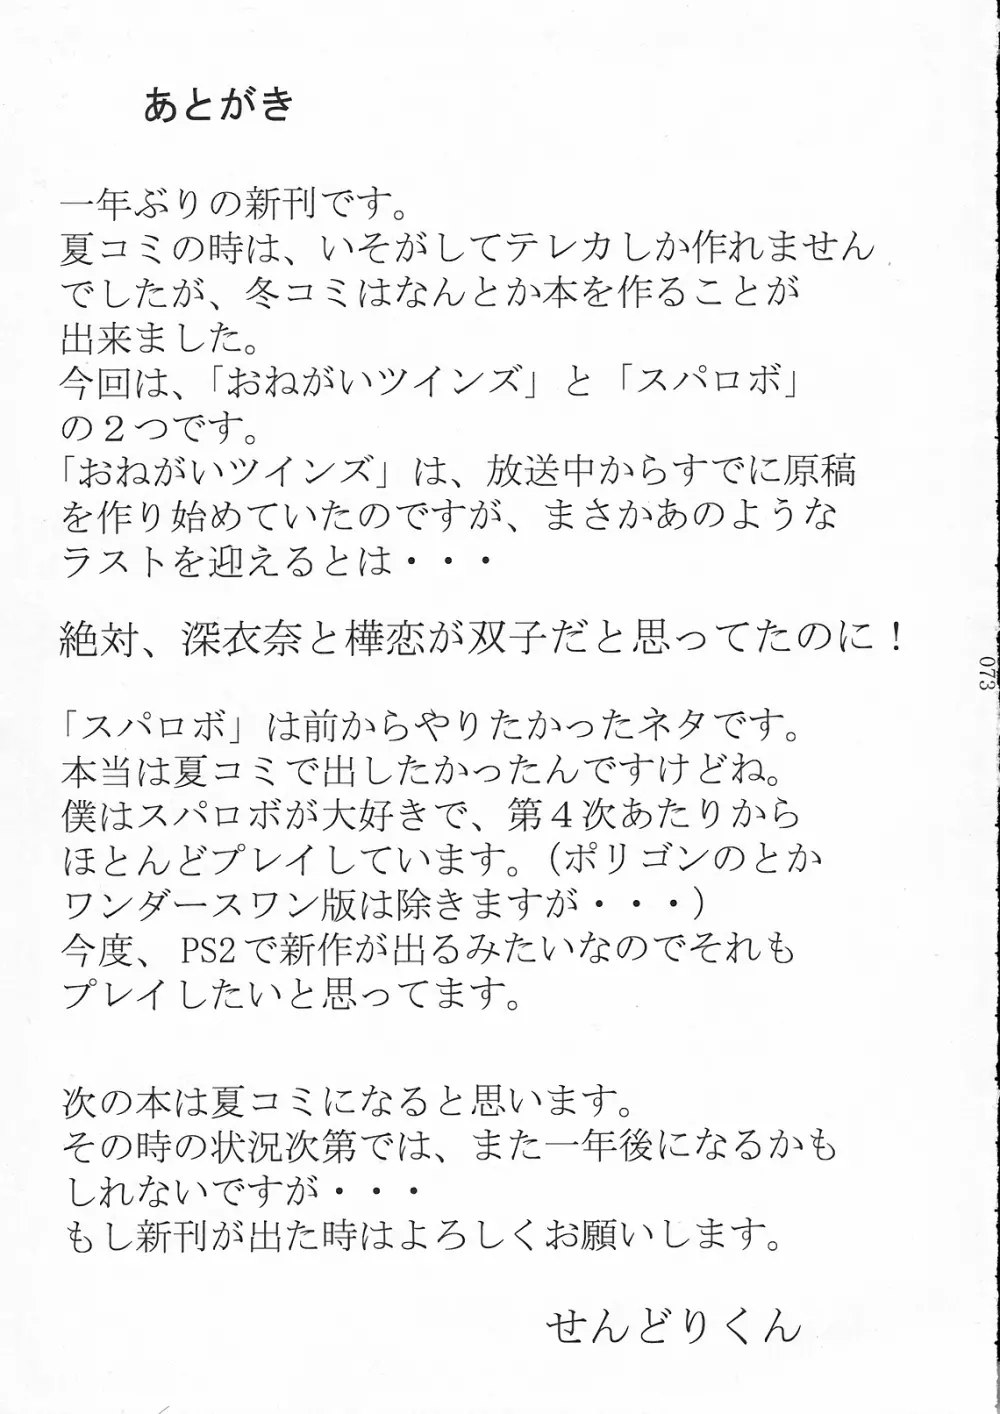 あとがき
一年ぶりの新刊です。
夏コミの時は、いそがしてテレカしか作れません
でしたが、冬コミはなんとか本を作ることが
出来ました。
今回は、「おねがいツインズ」と「スパロボ」
の２つです。
「おねがいツインズ」は、放送中からすでに原稿
を作り始めていたのですが、まさかあのような
ラストを迎えるとは・・・
絶対、深衣奈と樺恋が双子だと思ってたのに！
「スパロボ」は前からやりたかったネタです。
本当は夏コミで出したかったんですけどね。
僕はスパロボが大好きで、第４次あたりから
ほとんどプレイしています。（ポリゴンのとか
ワンダースワン版は除きますが・・・）
今度、PS2で新作が出るみたいなのでそれも
プレイしたいと思ってます。
次の本は夏コミになると思います。
その時の状況次第では、また一年後になるかも
しれないですが・・・
もし新刊が出た時はよろしくお願いします。
せんどりくん
073